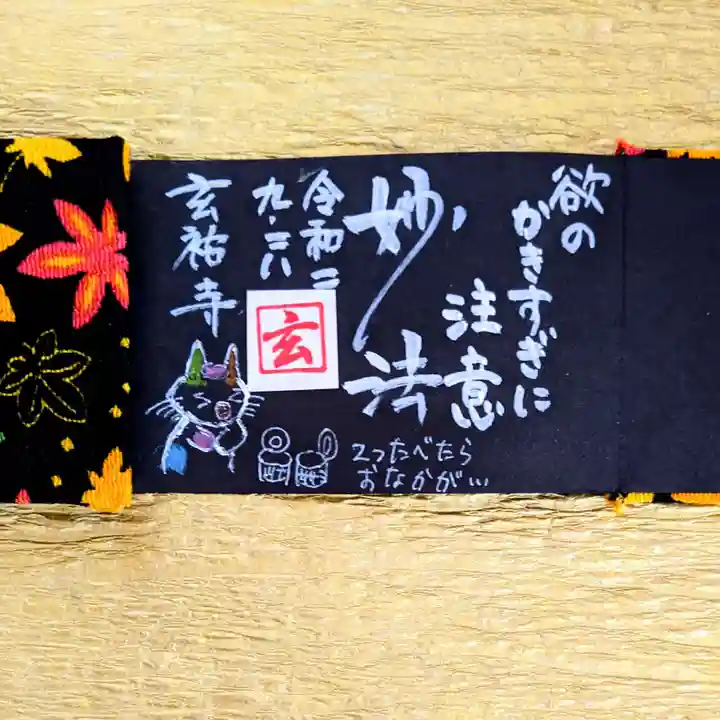 欲の
かきすぎに
注意
妙法
令和二
九・二八
玄
玄祐寺
2つたべたら
おなかが…